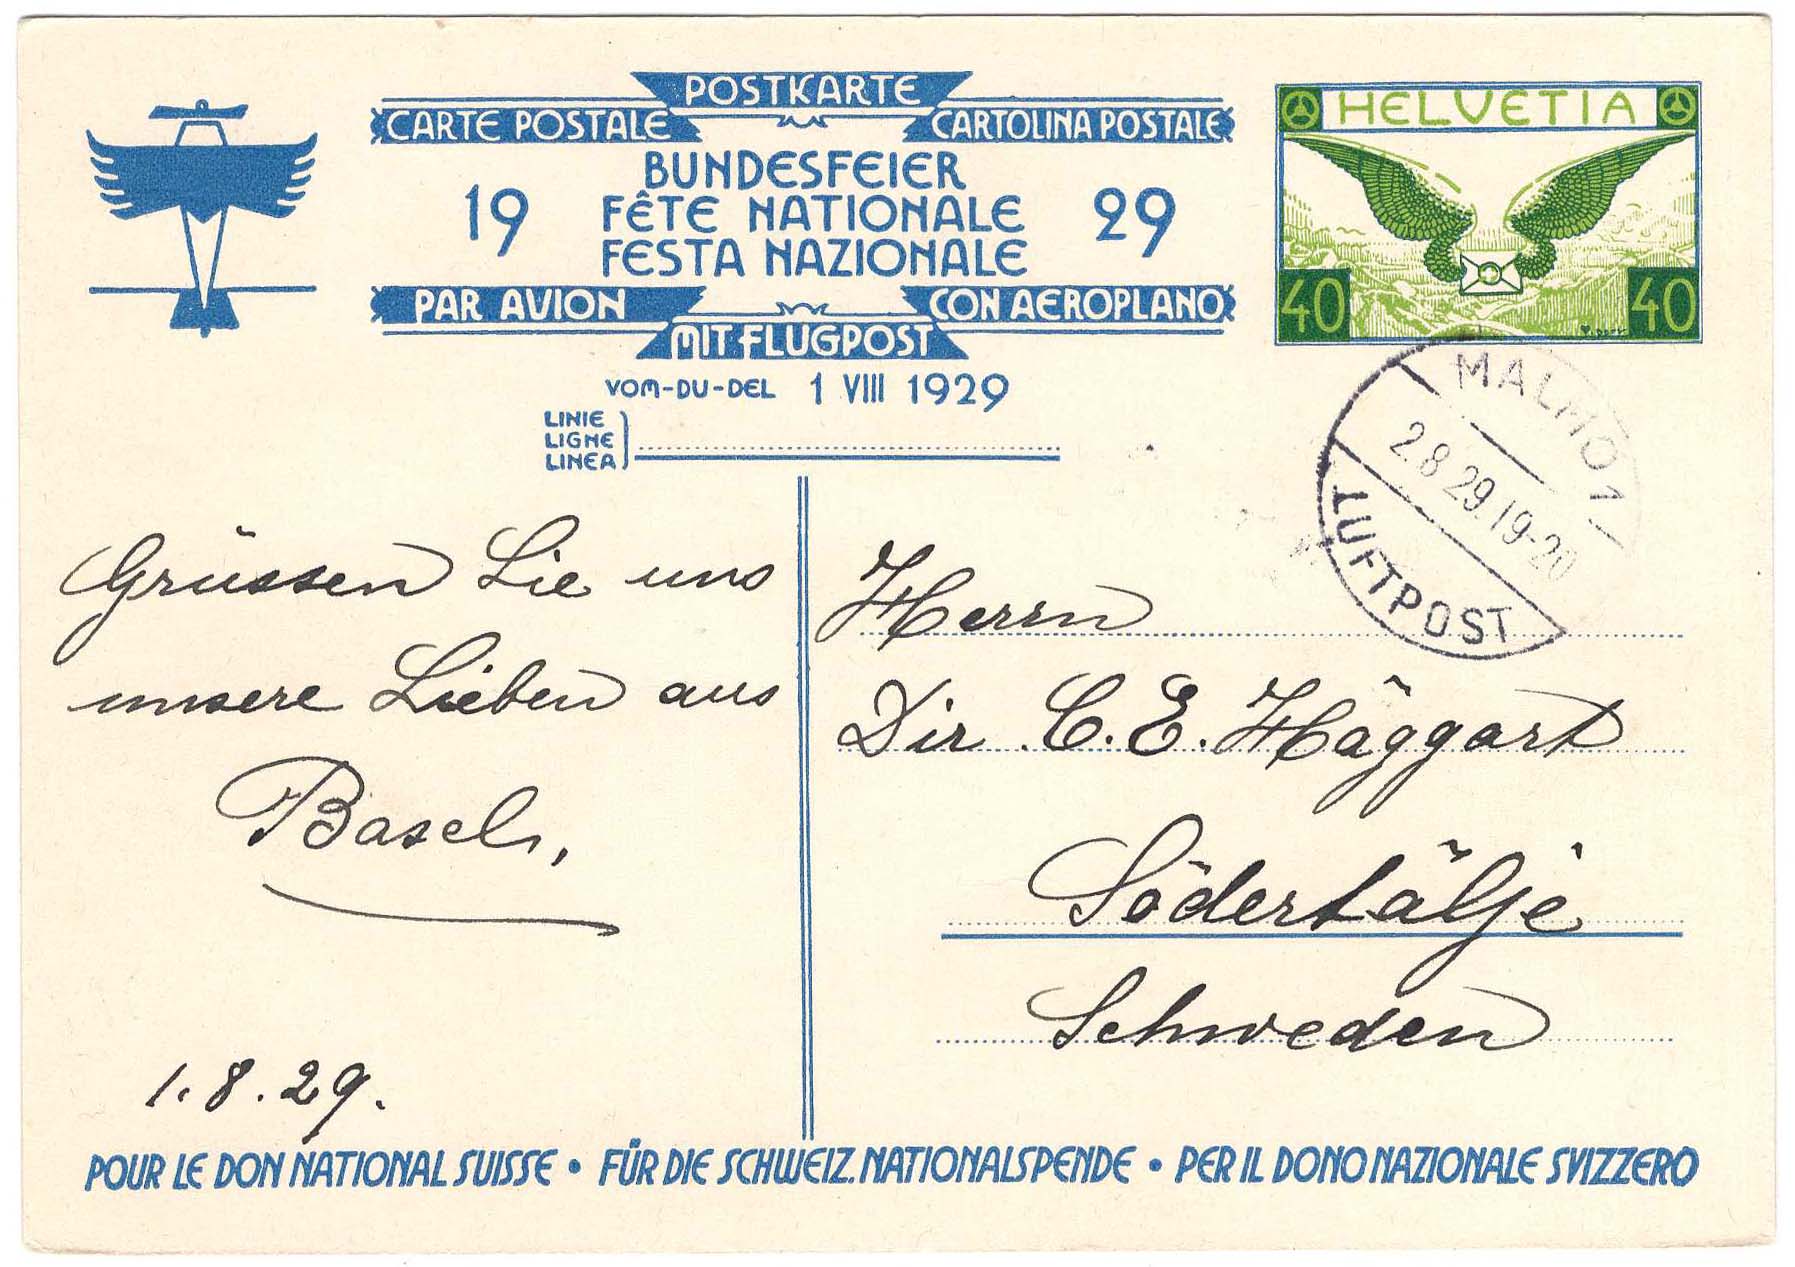 POSTKARTE
CARTE POSTALE
CARTOLINA POSTALE
BUNDESFEIER
19 FÊTE NATIONALE 29
FESTA NAZIONALE
PAR AVION
CON AEROPLANO
MIT FLUGPOST
VOM-DU-DEL 1 VIII 1929
LINIE
LIGNE
LINEA
HELVETIA
40 40
MALMÖ 1
2.8.29.19-20
LUFTPOST
Grüssen Sie uns
unsere Lieben aus
Basel,
1.8.29.
Herrn
Dir. C. E. Häggart
Södertälje
Schweden
POUR LE DON NATIONAL SUISSE • FÜR DIE SCHWEIZ. NATIONALSPENDE • PER IL DONO NAZIONALE SVIZZERO